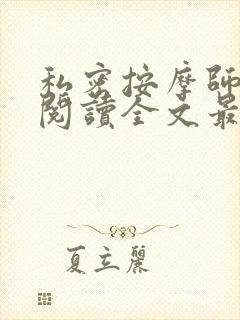 私密按摩師
閱讀全文最
夏立麗